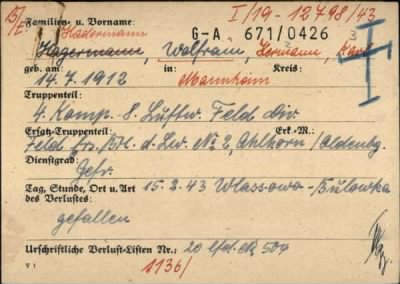 I/19-12798/43
B/E.
Familien- u. Vorname: Hadermann
G-A 671/0426
Hagermann, Wolfram, Hermann, Karl
geb. am: in: Kreis:
14.7.1912 Mannheim
Truppenteil:
4. Komp. 8. Luftw. Feld div
Ersatz-Truppenteil: Erk.-M.:
Feld Ers. Btl. d. Lw. № 2, Ahlhorn/Oldenbg.
Dienstgrad:
Gefr.
Tag, Stunde, Ort u. Art 15.2.43 Wlassowo-Bulowka
des Verlustes:
gefallen
Urschriftliche Verlust-Listen Nr.: 20 lfd. № 504
V 1
1136/